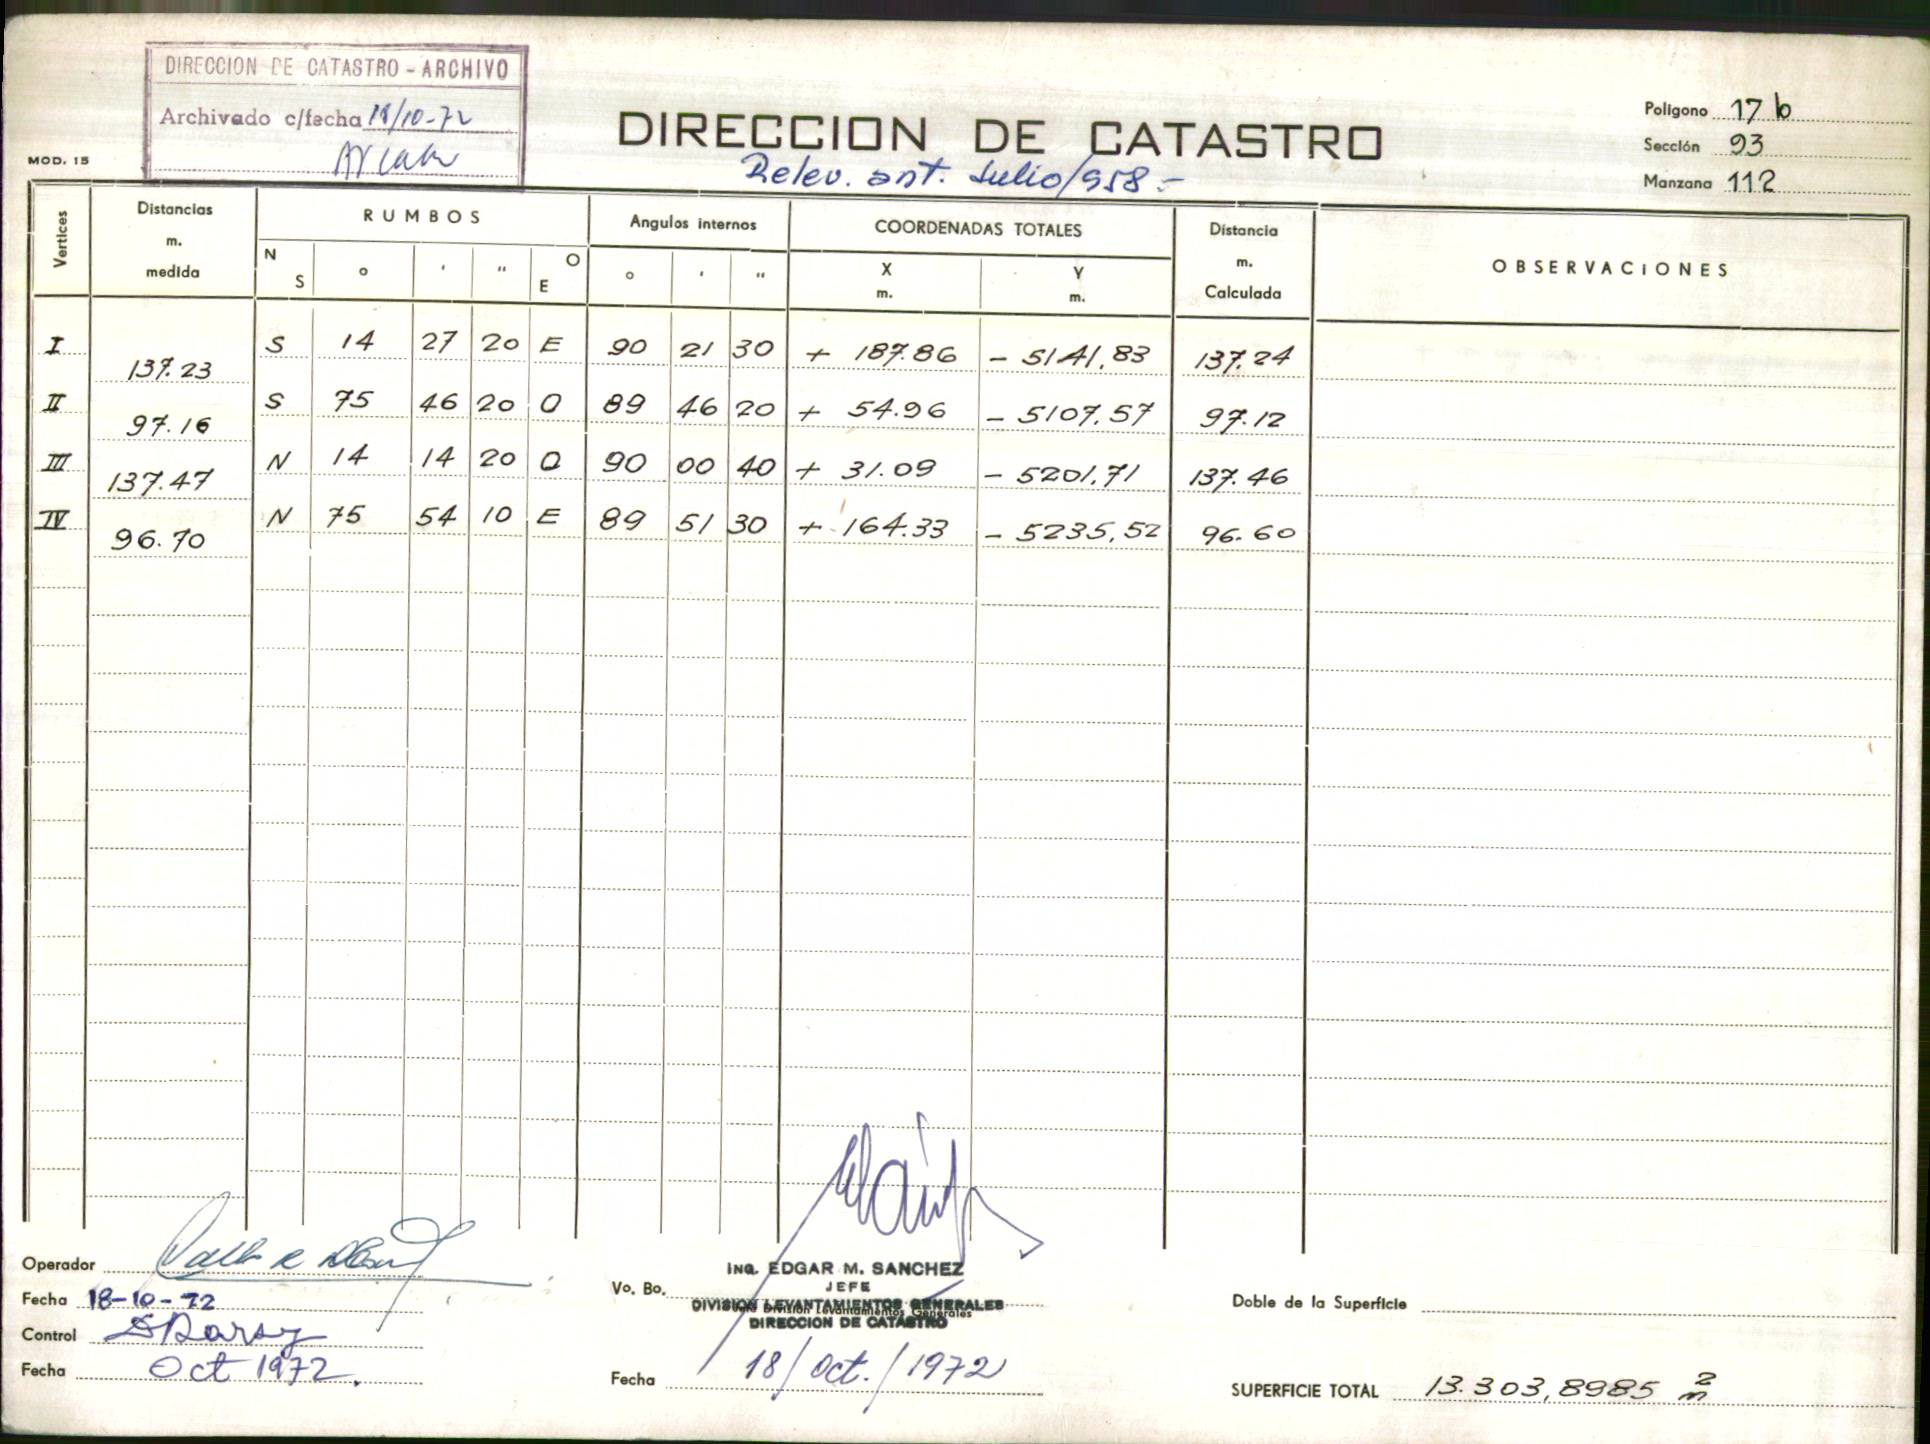 DIRECCION DE CATASTRO - ARCHIVO
Archivado c/fecha 18/10-72
MOD. 15
DIRECCION DE CATASTRO
Relev. ant. Julio/958.-
Poligono 17 b
Sección 93
Manzana 112
Vertices Distancias m. medida RUMBOS Angulos internos COORDENADAS TOTALES Distancia m. Calculada OBSERVACIONES
N S ° ' " O E ° ' " X m. Y m.
I S 14 27 20 E 90 21 30 + 187.86 - 5141,83 137.24
137.23
II S 75 46 20 O 89 46 20 + 54.96 - 5107,57 97.12
97.16
III N 14 14 20 O 90 00 40 + 31.09 - 5201,71 137.46
137.47
IV N 75 54 10 E 89 51 30 + 164.33 - 5235,52 96.60
96.70
Operador
Fecha 18-10-72
Control
Fecha Oct 1972.
Vo. Bo.
Ing. EDGAR M. SANCHEZ
JEFE
DIVISION LEVANTAMIENTOS GENERALES
División Levantamientos Generales
DIRECCION DE CATASTRO
Fecha 18/oct./1972
Doble de la Superficie
SUPERFICIE TOTAL 13.303,8985 m2